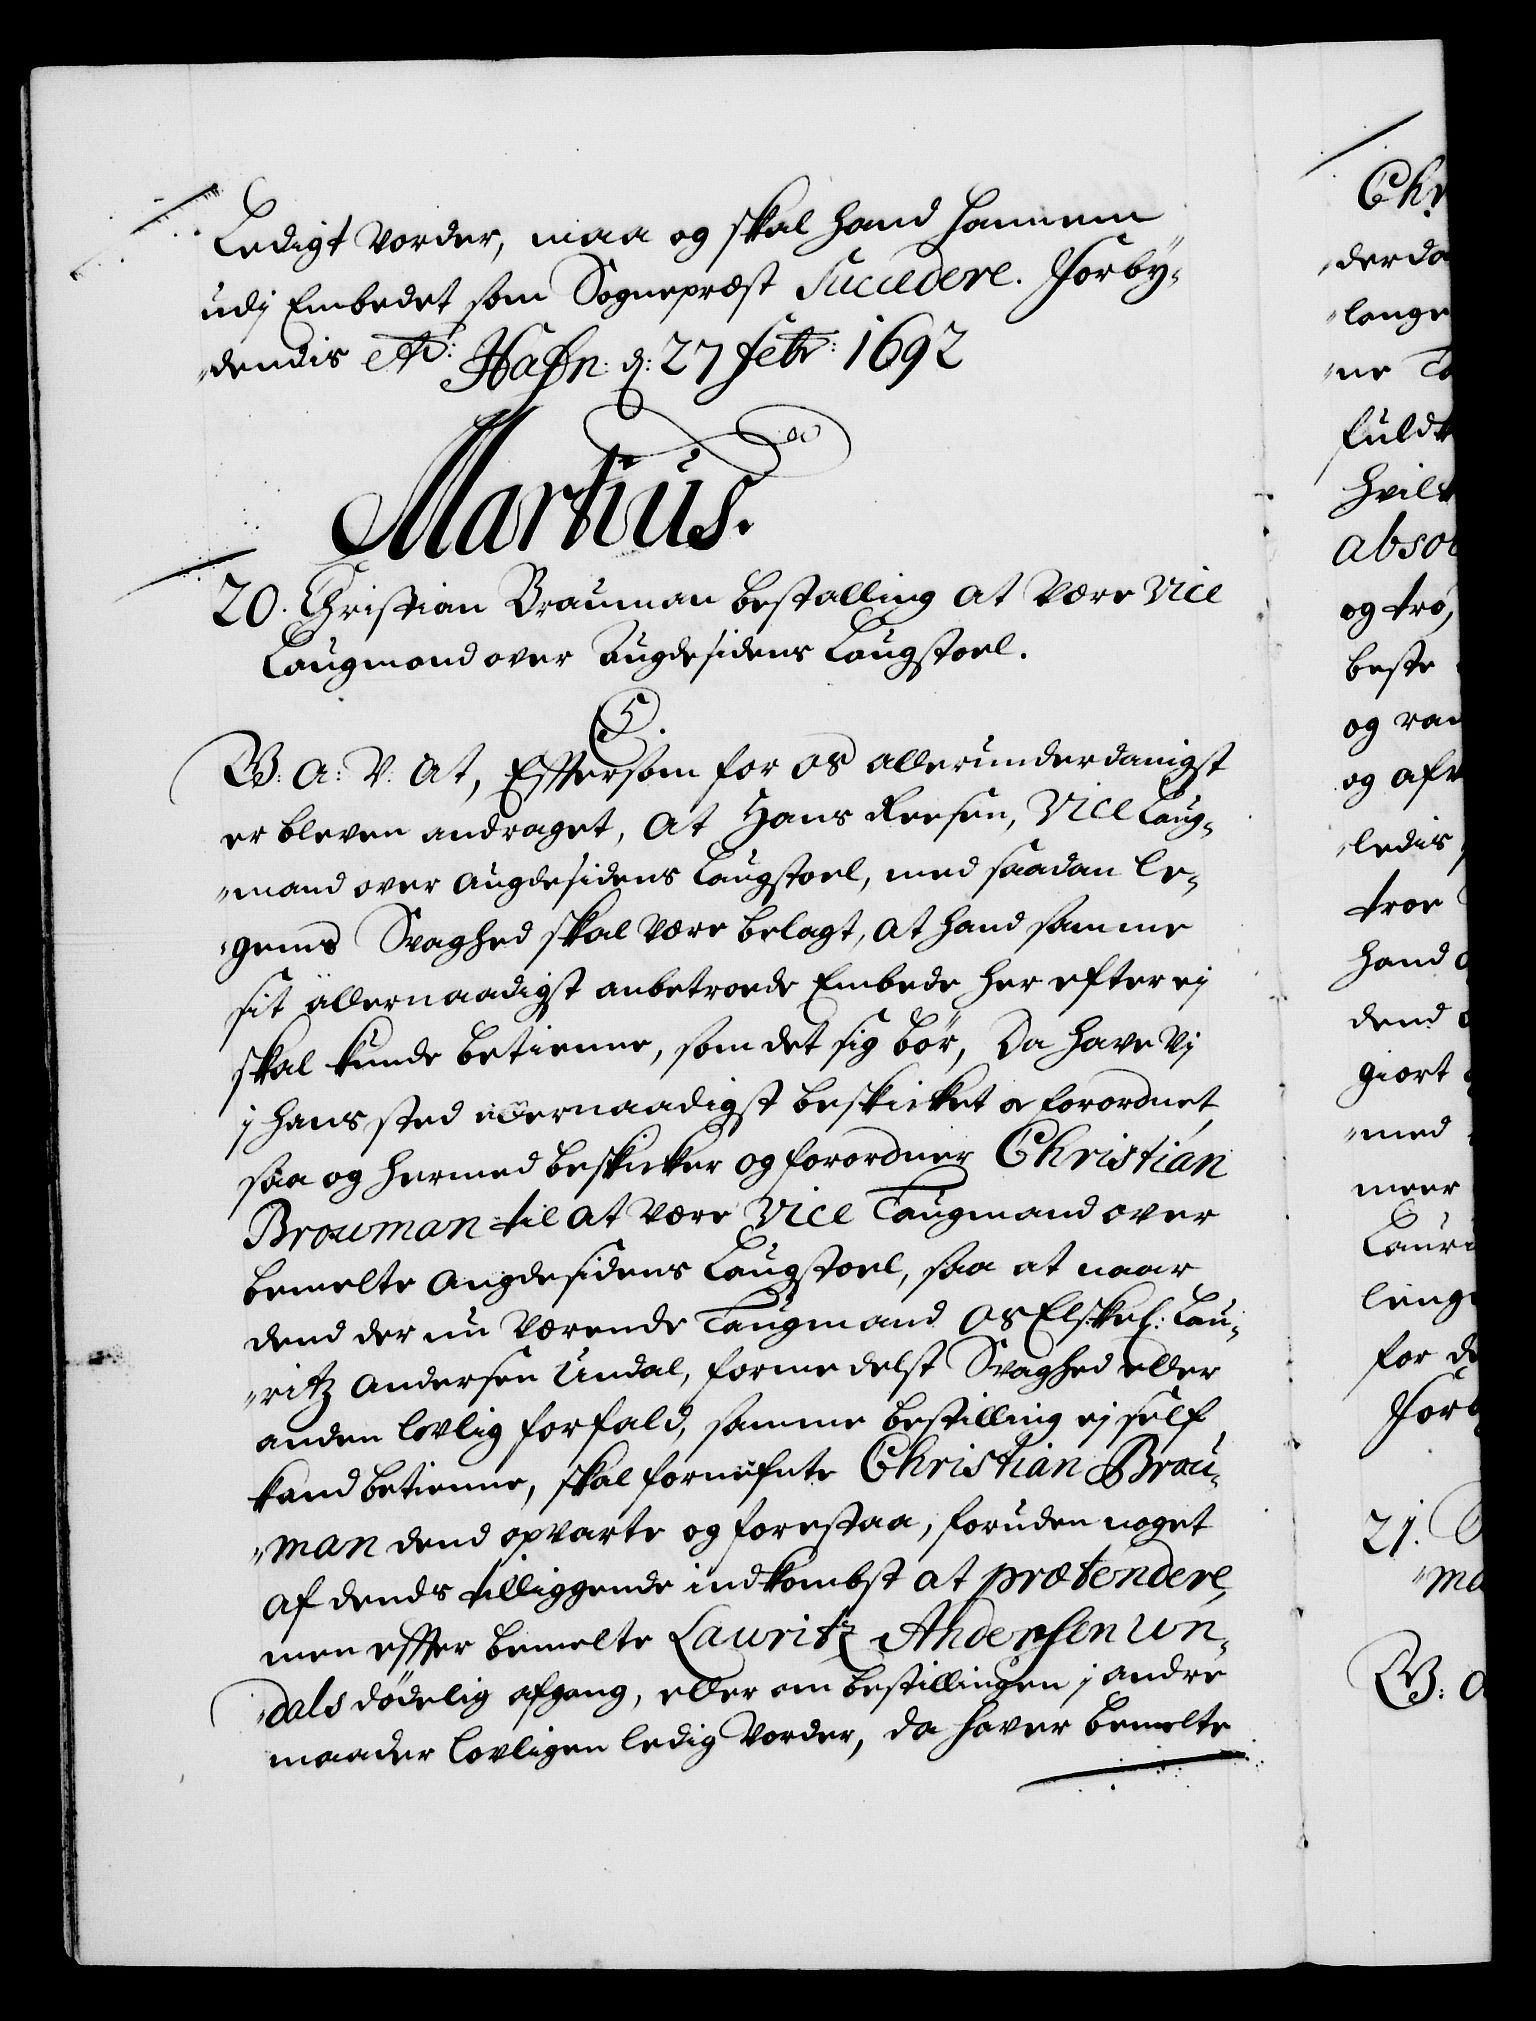 Ledigt vorder, maa og skal hand hannem
udj Embedet som Sognepræst Succedere. Forby-
dendis etc: Hafn: d: 27 Febr: 1692
Martius.
20. Christian Brauman bestalling at være Vice
Laugmand over Augdesidens Laugstoel.
C5.
W: A: V. At, Efftersom for os allerunderdanigst
er bleven andraget, at Hans Reesen, Vice Laug-
mand over Augdesidens Laugstoel, med saadan le-
gems Svaghed skal være belagt, at hand samme
sit allernaadigst anbetroede Embede her efter ej
skal kunde betienne, som det sig bør, Da have Vj
j hans sted allernaadigst beskicket oc forordnet,
saa og hermed beskicker og forordner Christian
Brouman til at være Vice Laugmand over
bemelte Augdesidens Laugstoel, saa at naar
dend der nu værende Laugmand Os Elskel: Lau-
ritz Andersen Undal, formedelst Svaghed eller
anden lovlig forfald, samme bestilling ej self
kand betienne, skal fornefnte Christian Brou-
man dend opvarte og forestaa, foruden noget
af dends tilliggende indkombst at prætendere,
men effter bemelte Lauritz Andersen Un-
dals dødelig afgang, eller om bestillingen j andre
maader lovligen ledig vorder, da haver bemelte
Chr
derda
lange
ne La
fuld
hvil
absol
og trø,
beste
og ran
og afv
ledis
troe
hand
dend
giort
med
meer
Lauri
leng
for d
Forb
21.
W: A